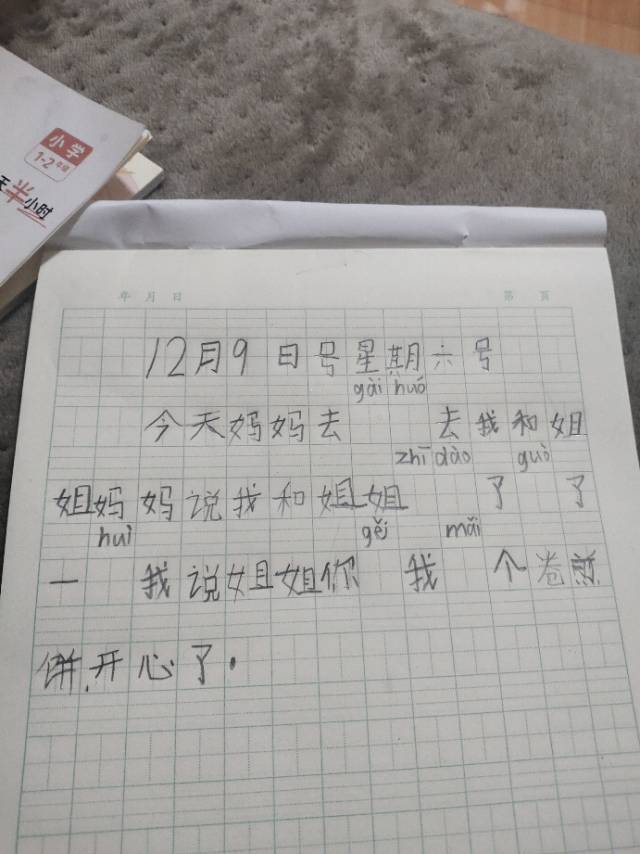 小学
1-2年级
天半小时
年 月 日
第 页
12月9日号星期六号
gài huó
今天妈妈去 去我和姐
zhī dào guò
姐妈妈说我和姐姐 了 了
huì gěi mǎi
一 我说姐姐你 我 个卷煎
饼.开心了.